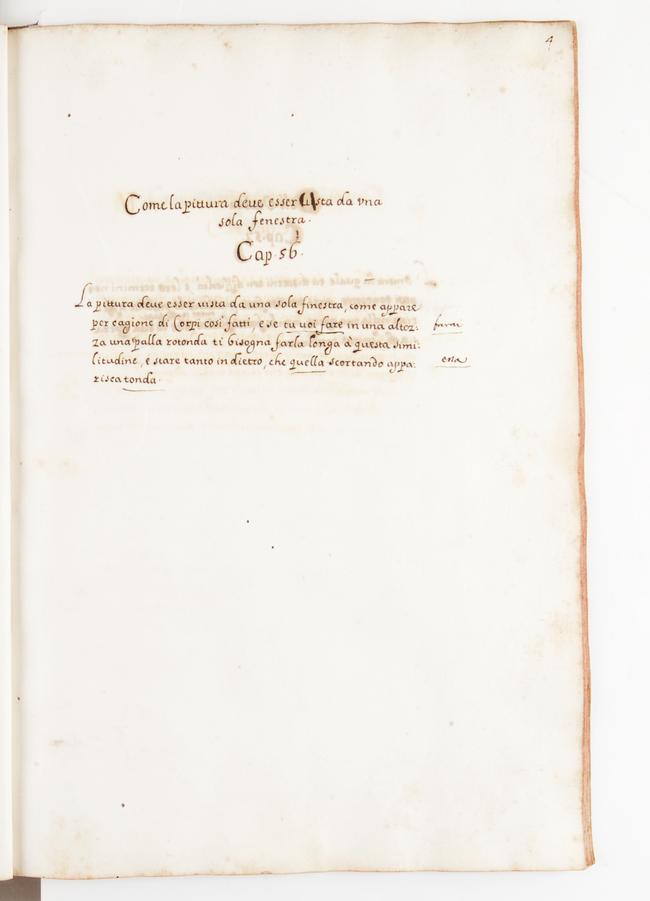 4
Come la pittura deve esser vista da vna
sola fenestra.
Cap. 56.
La pittura deve esser uista da una sola finestra, come appare
per cagione di Corpi cosi fatti, e se tu uoi fare in una altez-
za una palla rotonda ti bisogna farla longa à questa simi-
litudine, e stare tanto in dietro, che quella scortando appa-
risca tonda.